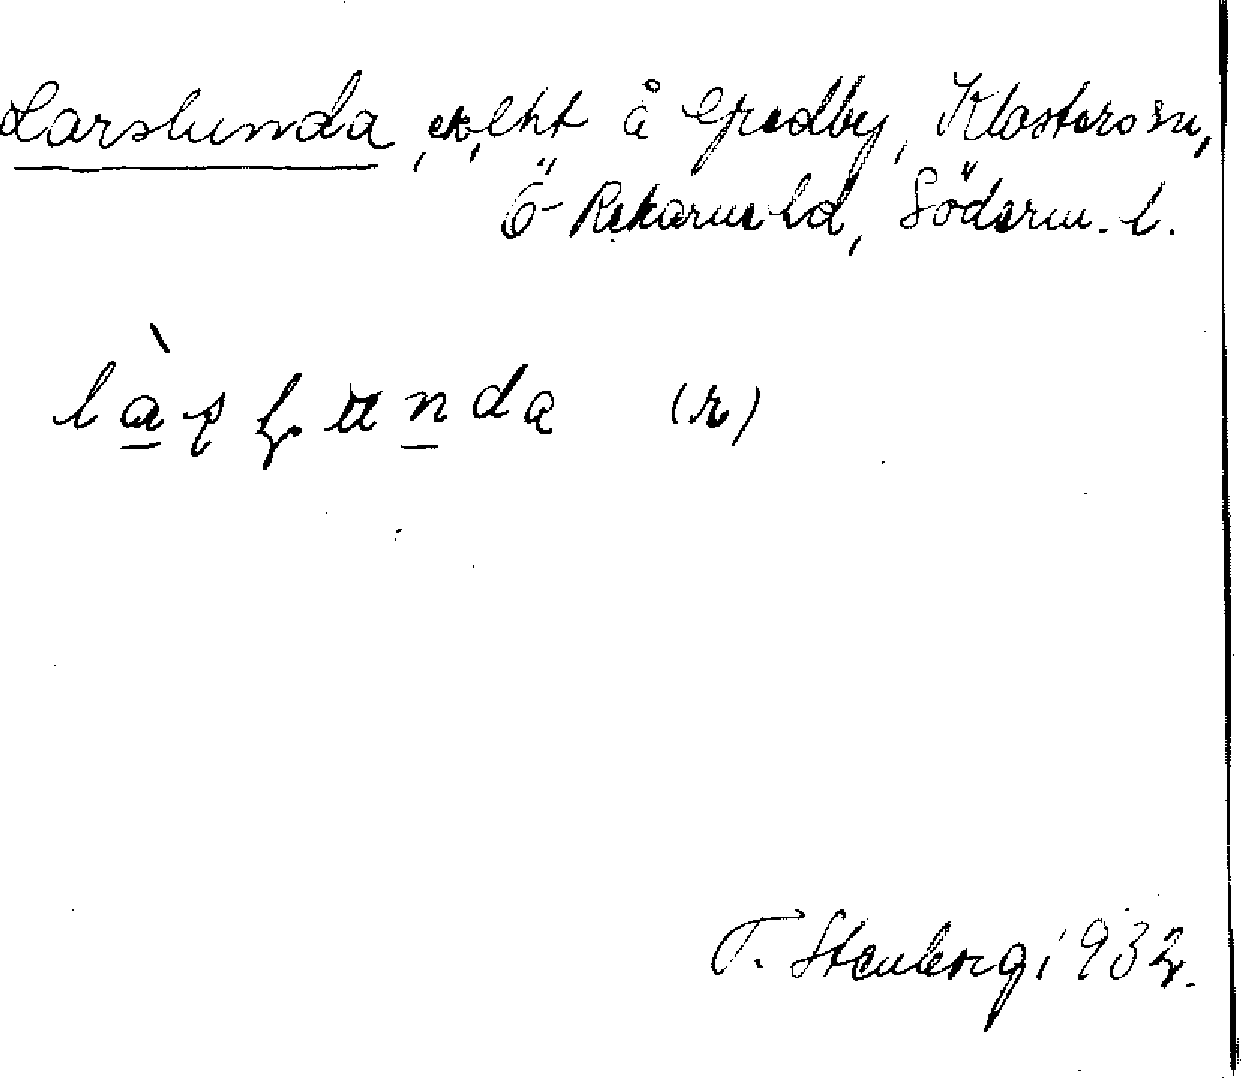 Larslunda, ek, lht å Gredby, Klosters sn,
Ö Rekarne hd, Söderm. l.
làꞩlunda (r)
T. Stenberg 1932.